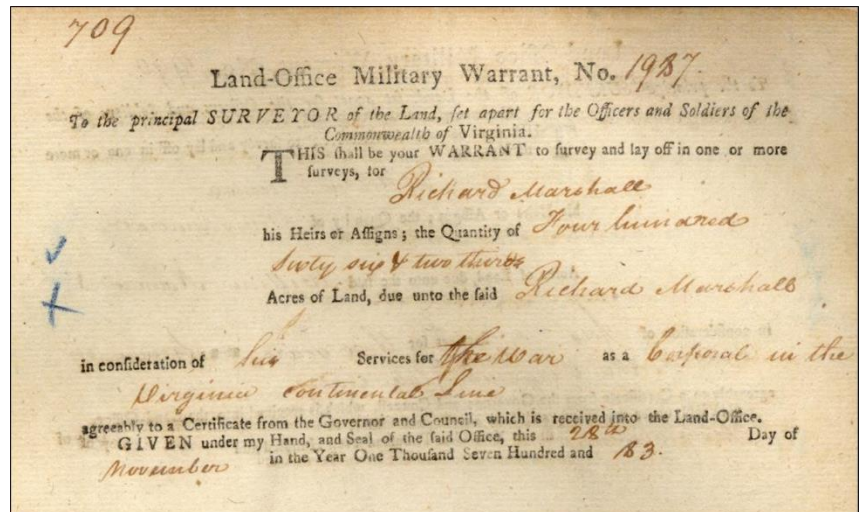 709
Land-Office Military Warrant, No. 1987
To the principal SURVEYOR of the Land, ſet apart for the Officers and Soldiers of the
Commonwealth of Virginia.
THIS ſhall be your WARRANT to ſurvey and lay off in one or more
ſurveys, for
Richard Marshall
his Heirs or Aſſigns; the Quantity of Four hundred
Sixty six & two thirds
Acres of Land, due unto the ſaid Richard Marshall
in conſideration of his Services for the War as a Corporal in the
Virginia Continental Line
agreeably to a Certificate from the Governor and Council, which is received into the Land-Office.
GIVEN under my Hand, and Seal of the ſaid Office, this 28th Day of
November in the Year One Thouſand Seven Hundred and 83.